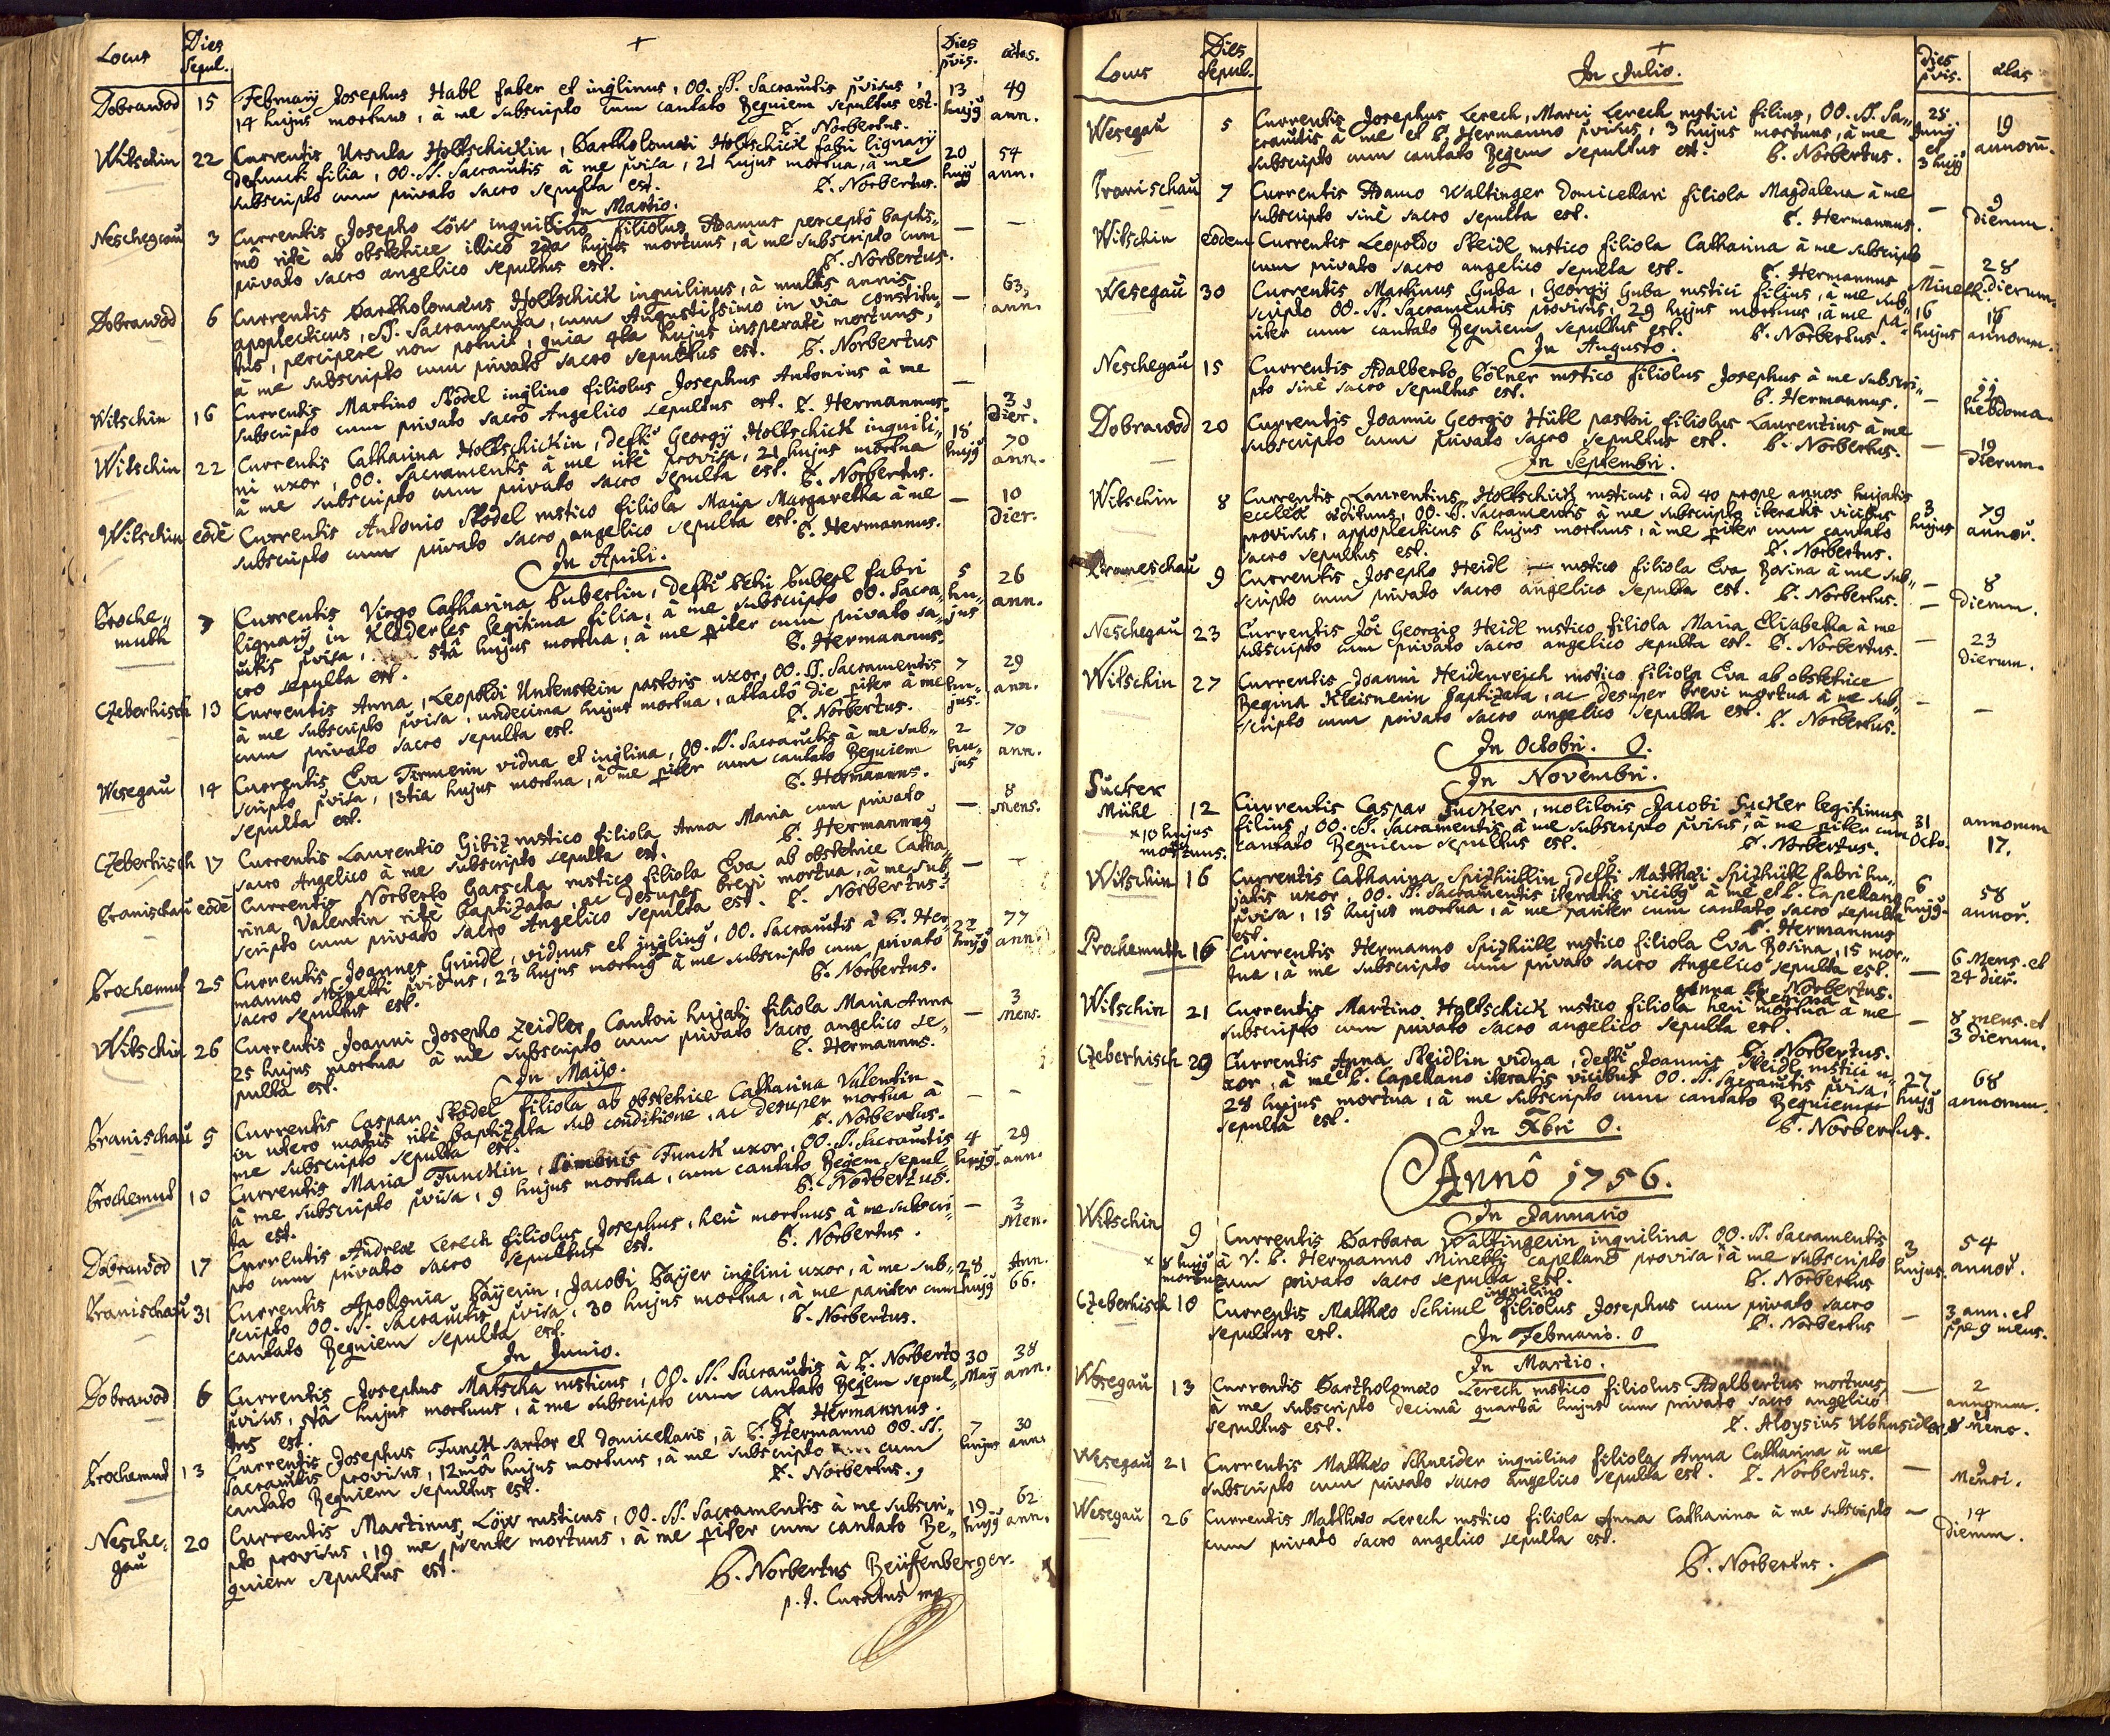 Locus Dies Sepul. + Dies pvis. ætas.
Dobrawod 15 Februarij Josephus Habl faber et inqlinus, OO. SS. Sacramtis pvisus, 13 49
14 hujus mortuus, à me subscripto cum cantato Requiem sepultus est. hujg ann.
P. Norbertus.
Witschin 22 Currentis Ursula Holtschickin, Bartholomæi Holtschick fabri lignarij 20 54
defuncti filia, OO. SS. Sacramtis à me pvisa, 21 hujus mortua, à me hujg ann.
subscripto cum privato sacro sepulta est. P. Norbertus.
In Martio.
Neschegau 3 Currentis Josepho Löw inquilino filiolus Adamus perceptô baptis- — —
mô ritè ab obstetrice illico 2da hujus mortuus, à me subscripto cum
privato sacro angelico sepultus est. P. Norbertus.
Dobrawod 6 Currentis Bartholomæus Holtschick inquilinus, à multis annis — 63
apoplecticus, SS. Sacramenta, cum Angustissimo in via constitu- ann.
tus, percipere non potuit, quia 4ta hujus insperatè mortuus,
à me subscripto cum privato sacro sepultus est. P. Norbertus
Witschin 16 Currentis Martino Stödel inqlino filiolus Josephus Antonius à me — 3
subscripto cum privato sacro Angelico sepultus est. P. Hermannus. Dier.
Witschin 22 Currentis Catharina Holtschickin, defti Georgij Holtschick inquili- 18 70
ni uxor, OO. Sacramentis à me ritè provisa, 21 hujus mortua hujg ann.
à me subscripto cum privato sacro sepulta est. P. Norbertus.
Witschin eodē Currentis Antonio Stödel rustico filiola Maria Margaretha à me — 10
subscripto cum privato sacro angelico sepulta est. P. Hermannus. Dier.
In Aprili.
Proche- 7 Currentis Virgo Catharina Buberlin, defti Buberl fabri 5 26
muth lignarij in Kladerles legitima filia, à me subscripto OO. Sacra- hu- ann.
mtis pvisa, 5tâ hujus mortua, à me piter cum privato sa- jus
cro sepulta est. P. Hermannus.
Czeberhisch 13 Currentis Anna, Leopoldi Untenstein pastoris uxor, OO. SS. Sacramentis 7 29
à me subscripto pvisa, undecima hujus mortua, attactô die piter à me hu- ann.
cum privato sacro sepulta est. P. Norbertus. jus.
Wesegau 14 Currentis Eva Tirmerin vidua et inqlina, OO. SS. Sacramtis à me sub- 2 70
scripto pvisa, 13tia hujus mortua, à me piter cum cantato Requiem hu- ann.
sepulta est. P. Hermannus. jus
Czeberhisch 17 Currentis Laurentio Gibiz rustico filiola Anna Maria cum privato — 8
sacro Angelico à me subscripto sepulta est. P. Hermannus Mens.
Branischau eodē Currentis Norberto Garscha rustico filiola Eva ab obstetrice Catha- — —
rina Valentin ritè baptizata, ac desuper brevi mortua, à me sub-
scripto cum privato sacro Angelico sepulta est. P. Norbertus.
Prochemut 25 Currentis Joannes Gründl, viduus et inqling, OO. Sacramtis à P. Her- 22 77
manno Minetti pvisus, 23 hujus mortug à me subscripto cum privato hujg ann.
sacro sepultus est. P. Norbertus.
Witschin 26 Currentis Joanni Josepho Zeidler Cantori hujati filiola Maria Anna — 3
25 hujus mortua à me subscripto cum privato sacro angelico se- Mens.
pulta est. P. Hermannus.
In Majo.
Branischau 5 Currentis Caspar Stödel filiola ab obstetrice Catharina Valentin — —
in utero matris ritè baptizata sub conditione, ac desuper mortua à
me subscripto sepulta est. P. Norbertus.
Prochemud 10 Currentis Maria Funckin, Simonis Funck uxor, OO. SS. Sacramtis 4 29
à me subscripto pvisa, 9 hujus mortua, cum cantato Reqem sepul- hujg. ann.
ta est. P. Norbertus.
Dobrawod 17 Currentis Andreæ Lerech filiolus Josephus, heri mortuus à me subscri- — 3
pto cum privato sacro sepultus est. P. Norbertus. Men.
Branischau 31 Currentis Apollonia Baÿerin, Jacobi Baÿer inqlini uxor, à me sub- 28 Ann.
scripto OO. SS. Sacramtis pvisa, 30 hujus mortua, à me pariter cum hujg 66.
cantato Requiem sepulta est. P. Norbertus.
In Junio.
Dobrawod 6 Currentis Josephus Matscha rusticus, OO. SS. Sacramtis à P. Norberto 30 38
pvisus, 5tâ hujus mortuus, à me subscripto cum cantato Reqem sepul- Maij ann.
tus est. P. Hermannus.
Prochemud 13 Currentis Josephus Funck sartor et domicellaris, à P. Hermanno OO. SS. 7 30
Sacramtis provisus, 12mâ hujus mortuus, à me subscripto cum hujus ann.
cantato Requiem sepultus est. P. Norbertus.
Nesche- 20 Currentis Martinus Löw rusticus, OO. SS. Sacramentis à me subscri- 19 62
gau pto provisus, 19 me pvente mortuus, à me piter cum cantato Re- hujg ann.
quiem sepultus est.
P. Norbertus Reüffenberger.
p. t. Curatus mp
Locus Dies Sepul. + In Julio. Dies pvis. ætas
Wesegau 5 Currentis Josephus Lerech, Marci Lerech rustici filius, OO. SS. Sa- 25 19
cramtis à me et P. Hermanno pvisus, 3 hujus mortuus, à me Junij annorū.
subscripto cum cantato Reqem sepultus est. P. Norbertus. et 3 hujg
Pranischau 7 Currentis Adamo Waltinger Domicellari filiola Magdalena à me — 9
subscripto sinè sacro sepulta est. P. Hermannus. Dierum.
Witschin eodem Currentis Leopoldo Steidl rustico filiola Catharina à me subscripto — 28
cum privato sacro angelico sepulta est. P. Hermannus Minetti. Dierum.
Wesegau 30 Currentis Martinus Guba, Georgij Guba rustici filius, à me sub- 16 16
scripto OO. SS. Sacramentis provisus, 29 hujus mortuus, à me pa- hujus annorum.
riter cum cantato Requiem sepultus est. P. Norbertus.
In Augusto.
Neschegau 15 Currentis Adalberto Bölner rustico filiolus Josephus à me subscri- — 11
pto sinè sacro sepultus est. P. Hermannus. hebdoma.
Dobrawod 20 Currentis Joanni Georgio Hübl pastori filiolus Laurentius à me — 19
subscripto cum privato sacro sepultus est. P. Norbertus. Dierum.
In Septembri.
Witschin 8 Currentis Laurentius Holtschick rusticus, ad 40 prope annos hujatis 3 79
ecclæ ædituus, OO. SS. Sacramentis à me subscripto iteratis vicibus hujus annor.
provisus, appoplecticus 6 hujus mortuus, à me piter cum cantato
sacro sepultus est. P. Norbertus.
Prameschau 9 Currentis Josepho Heidl rustico filiola Eva Rosina à me sub- — 8
scripto cum privato sacro angelico sepulta est. P. Norbertus. — Dierum.
Neschegau 23 Currentis Joi Georgio Heidl rustico filiola Maria Elisabetha à me — 23
subscripto cum privato sacro angelico sepulta est. P. Norbertus. Dierum.
Witschin 27 Currentis Joanni Heidenreich rustico filiola Eva ab obstetrice — —
Regina Kleisnerin baptizata, ac desuper brevi mortua à me sub-
scripto cum privato sacro angelico sepulta est. P. Norbertus.
In Octobri. O.
In Novembri.
Sucker
Mühl 12 Currentis Caspar Sucker, molitoris Jacobi Sucker legitimus 31 annorum
× 10 hujus filius, OO. SS. Sacramentis à me subscripto pvisus, × à me piter cum Octo. 17.
mortuus. cantato Requiem sepultus est. P. Norbertus.
Witschin 16 Currentis Catharina Spizhüttin, defti Matthæi Spizhüttl fabri hu- 6 58
jatis uxor, OO. SS. Sacramentis iteratis vicibg à me et P. Capellano hujg. annor.
pvisa, 15 hujus mortua, à me pariter cum cantato sacro sepulta
est. P. Hermannus
Prochemuth 16 Currentis Hermanno Spizhüttl rustico filiola Eva Rosina, 15 mor- — 6 Mens. et
tua, à me subscripto cum privato sacro Angelico sepulta est. 24 dier.
P. Norbertus.
Anna Regina
Witschin 21 Currentis Martino Holtschick rustico filiola heri mortua à me — 8 mens. et
subscripto cum privato sacro angelico sepulta est. P. Norbertus. 3 dierum.
Czeberhisch 29 Currentis Anna Steidlin vidua, defti Joannis Steidl rustici u- 27 68
xor, à me P. Capellano iteratis vicibus OO. SS. Sacramtis pvisa, hujg annorum.
28 hujus mortua, à me subscripto cum cantato Requiem
sepulta est. P. Norbertus.
In Xbri O.
Annô 1756.
In Januario
Witschin 9 Currentis Barbara Waltingerin inquilina OO. SS. Sacramentis 3 54
× 8 hujg à V. P. Hermanno Minetti capellano provisa × à me subscripto hujus. annor.
mortua cum privato sacro sepulta est. P. Norbertus
inquilino
Czeberhisch 10 Currentis Matthæo Schiml filiolus Josephus cum privato sacro — 3 ann. et
sepultus est. P. Norbertus ppe 9 mens.
In Februario. O
In Martio.
Wesegau 13 Currentis Bartholomæo Lerech rustico filiolus Adalbertus mortuus — 2
à me subscripto decimâ quartâ hujus cum privato sacro angelico annorum.
sepultus est. P. Aloysius Wohnsidler 8 Mens.
Wesegau 21 Currentis Matthæo Schneider inquilino filiola Anna Catharina à me — 9
subscripto cum privato sacro angelico sepulta est. P. Norbertus. Mensi.
Wesegau 26 Currentis Matthæo Lerech rustico filiola Anna Catharina à me subscripto — 14
cum privato sacro angelico sepulta est. Dierum.
P. Norbertus.